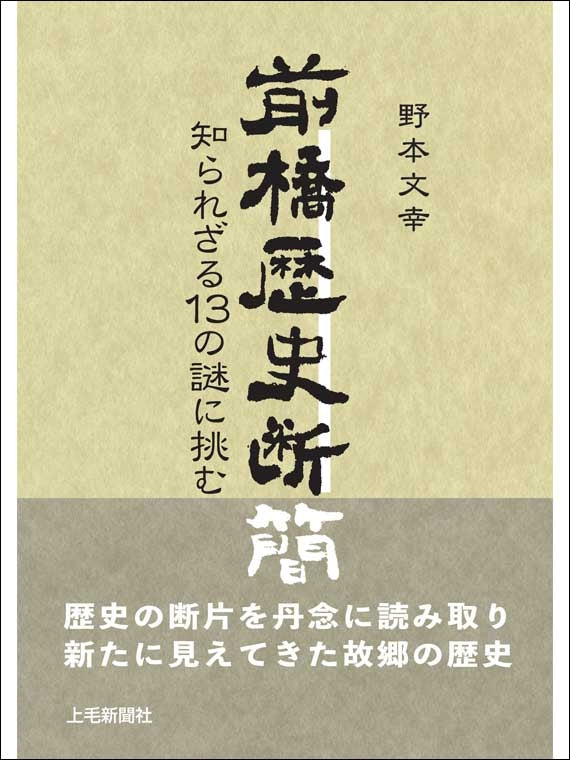 野本文幸
前橋歴史断簡
知られざる13の謎に挑む
歴史の断片を丹念に読み取り
新たに見えてきた故郷の歴史
上毛新聞社